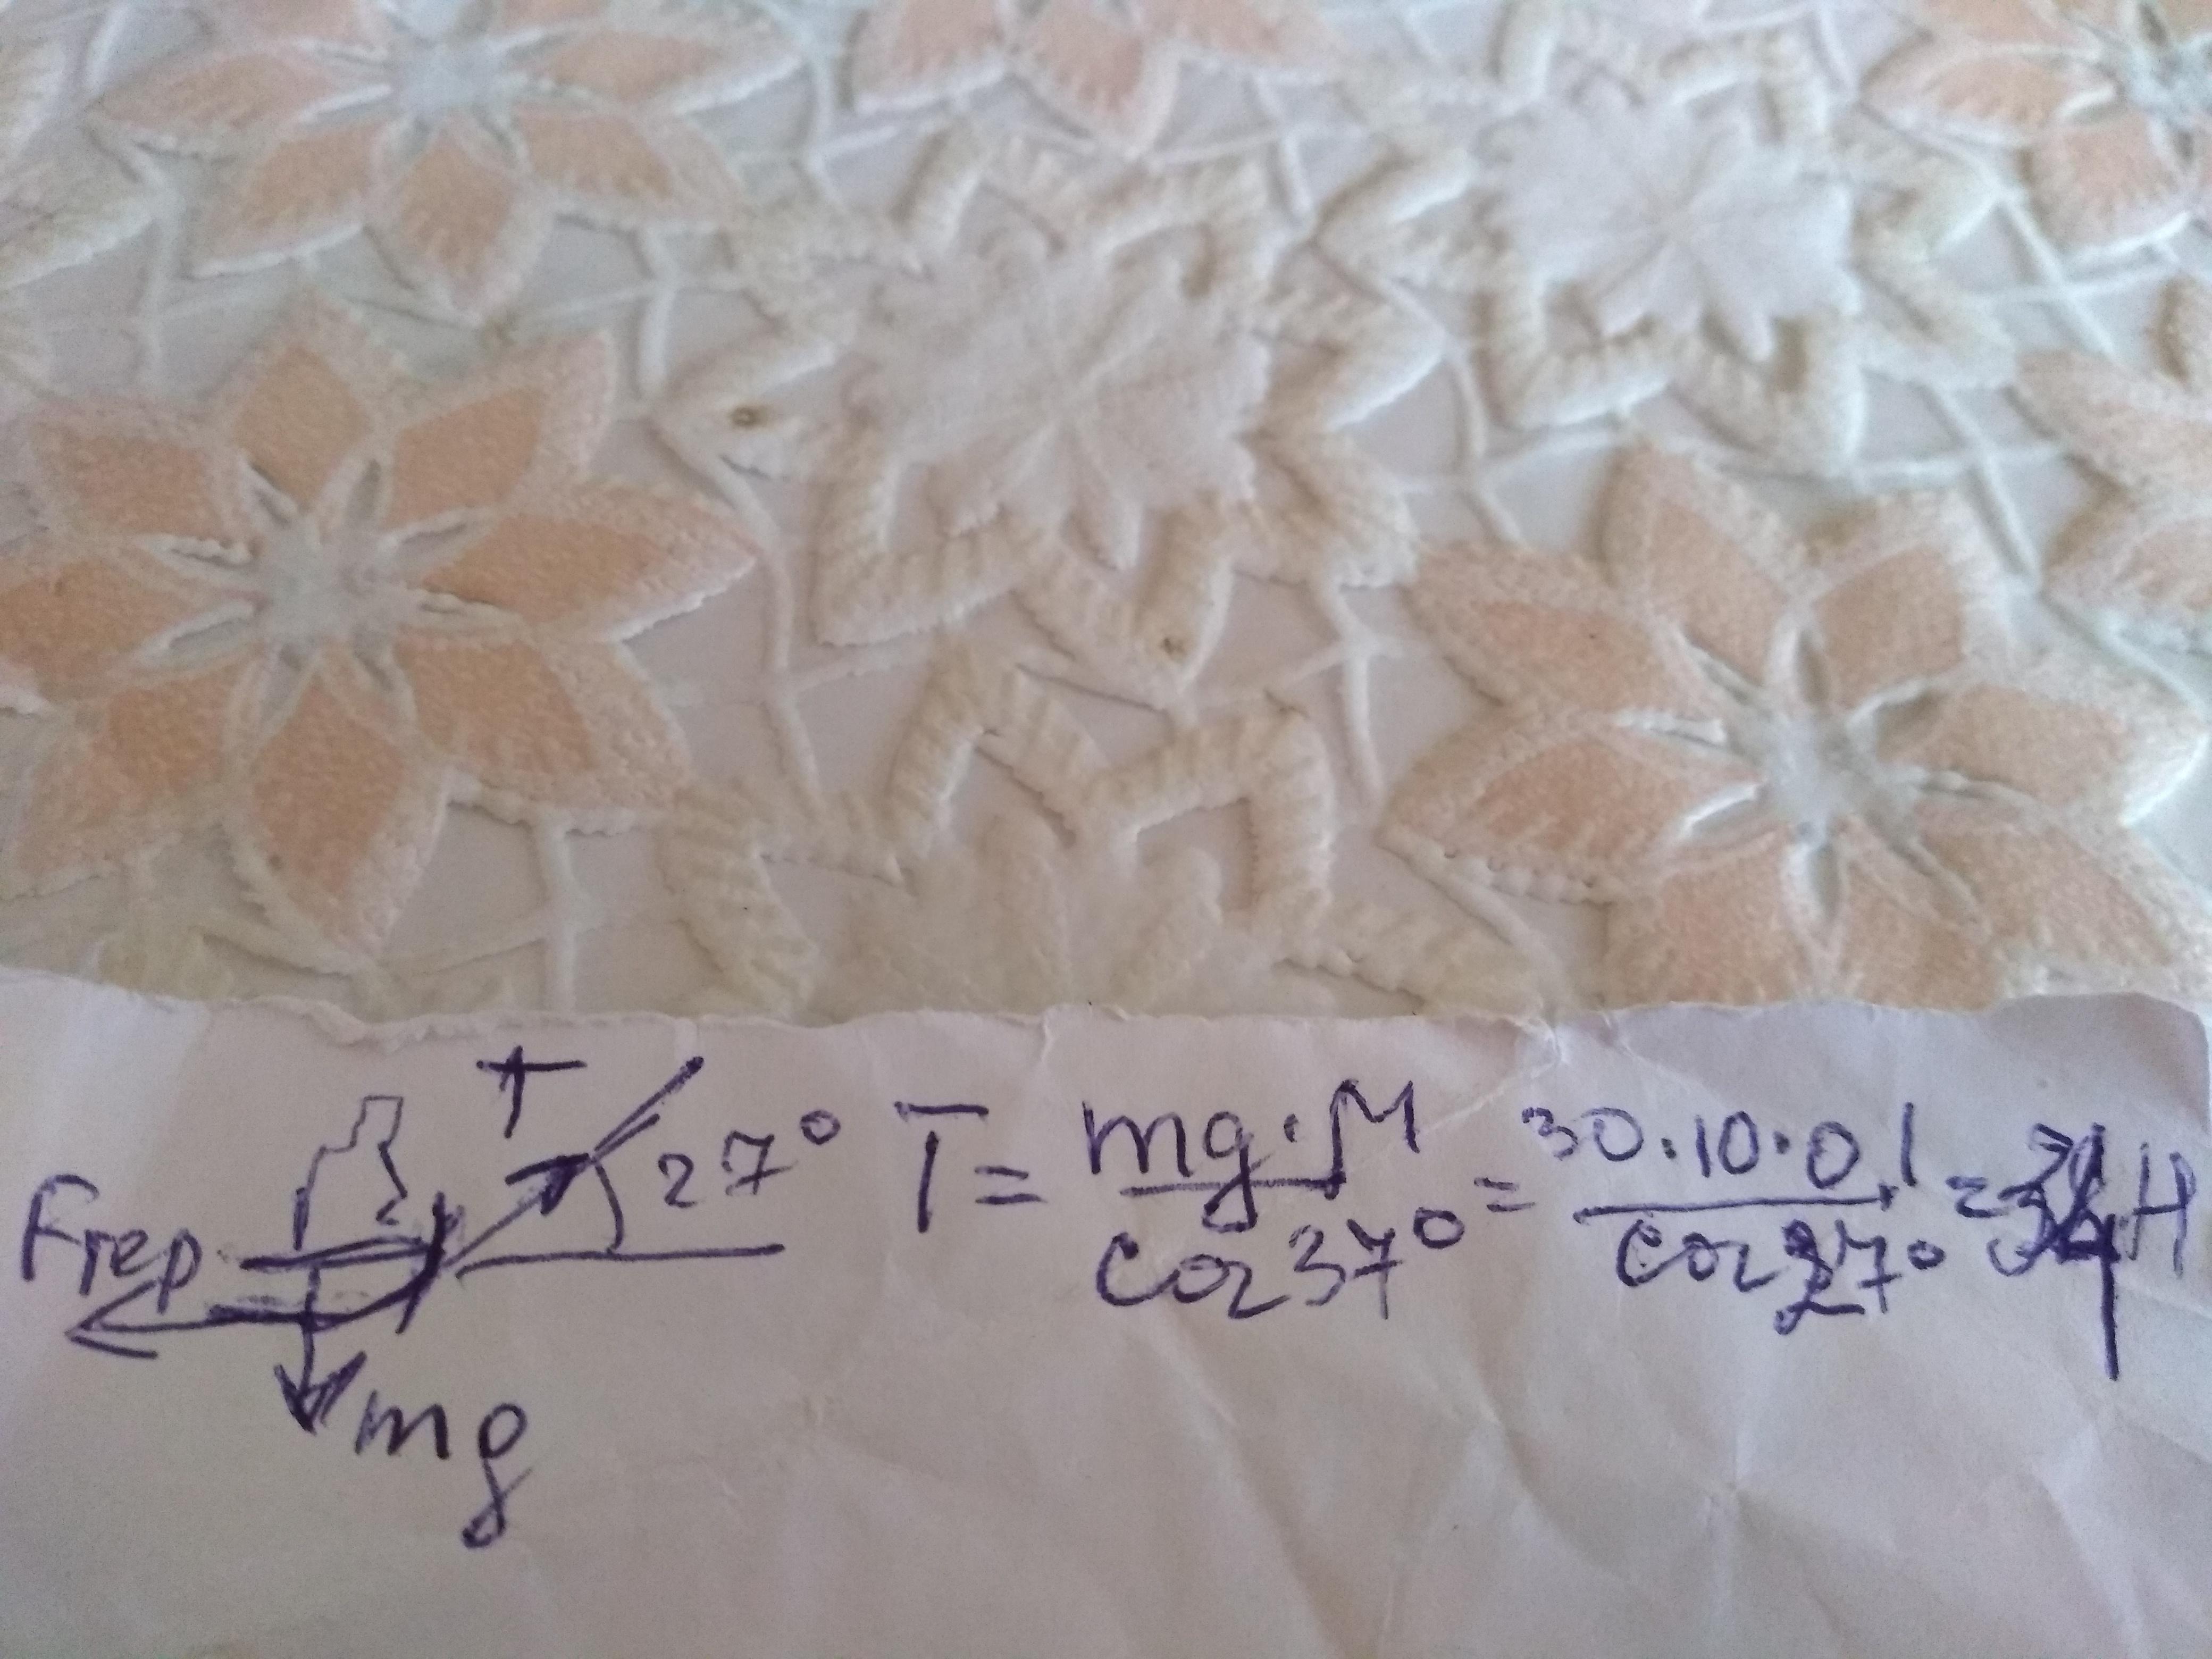 T
27°
Fтер
mg
T = mg·M / cos37° = 30·10·0,1 / cos27° = H